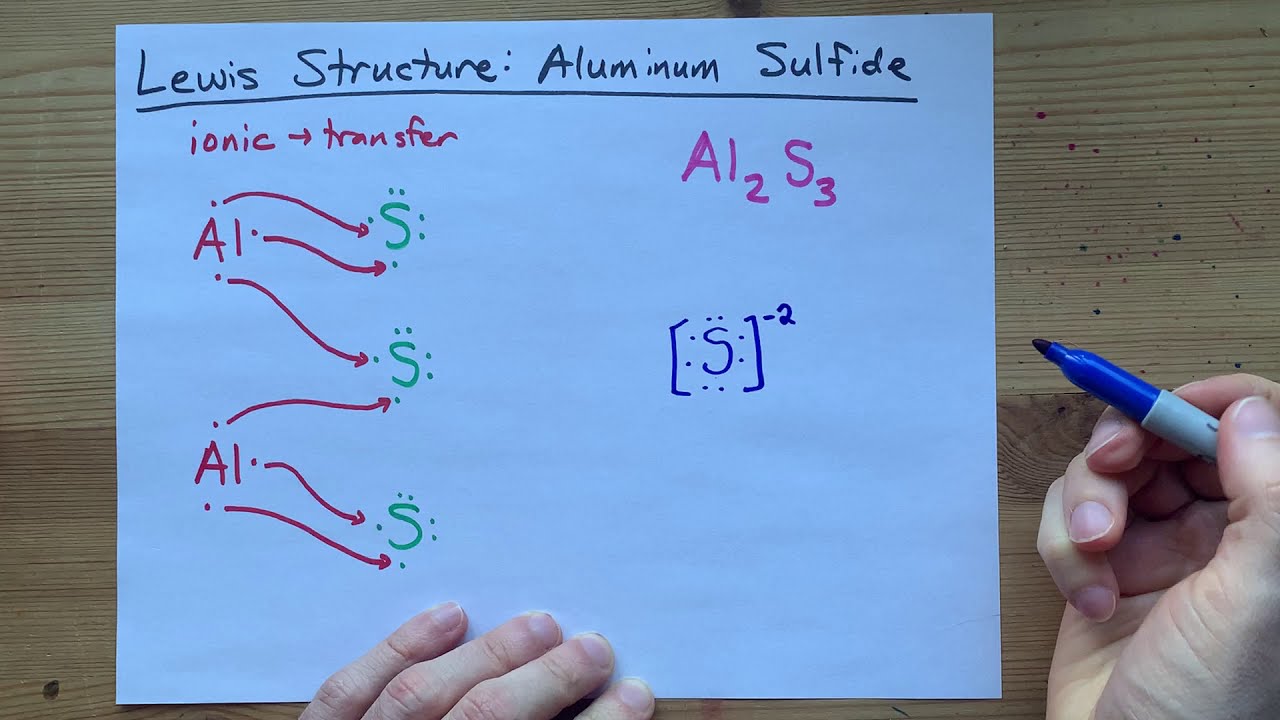 Lewis Structure: Aluminum Sulfide
ionic → transfer
Al₂S₃
Al
S
S
[S]⁻²
Al
S